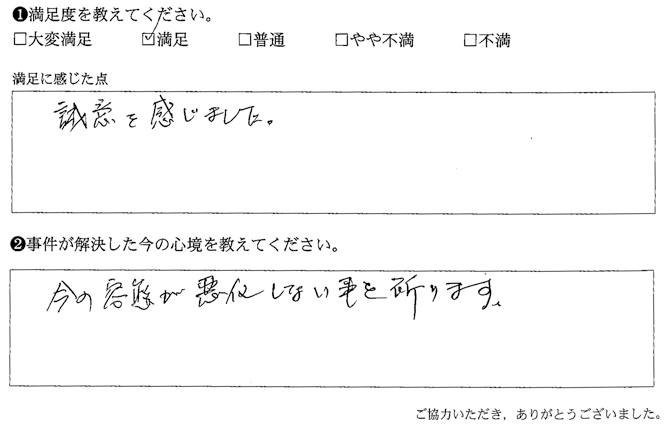 ❶満足度を教えてください。
□大変満足 ☑満足 □普通 □やや不満 □不満
満足に感じた点
誠意を感じました。
❷事件が解決した今の心境を教えてください。
今の容態が悪化しない事を祈ります。
ご協力いただき，ありがとうございました。